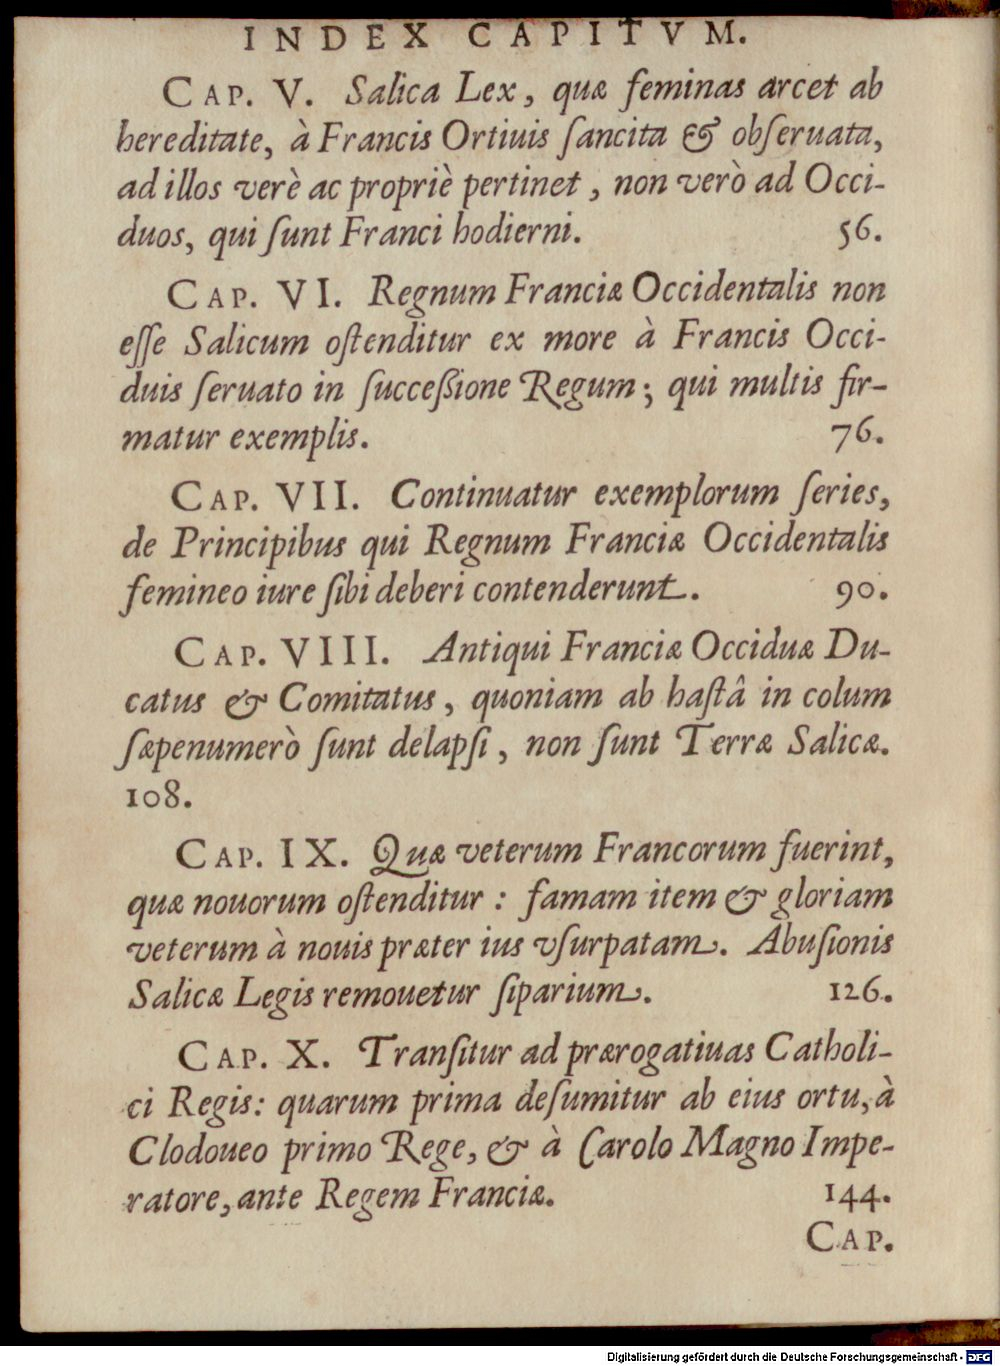 INDEX CAPITVM.
CAP. V. Salica Lex, quæ feminas arcet ab
hereditate, à Francis Ortiuis ſancita & obſeruata,
ad illos verè ac propriè pertinet, non verò ad Occi-
duos, qui ſunt Franci hodierni. 56.
CAP. VI. Regnum Franciæ Occidentalis non
eſſe Salicum oſtenditur ex more à Francis Occi-
duis ſeruato in succeßione Regum; qui multis fir-
matur exemplis. 76.
CAP. VII. Continuatur exemplorum ſeries,
de Principibus qui Regnum Franciæ Occidentalis
femineo iure ſibi deberi contenderunt. 90.
CAP. VIII. Antiqui Franciæ Occiduæ Du-
catus & Comitatus, quoniam ab haſtâ in colum
ſæpenumerò ſunt delapſi, non ſunt Terræ Salicæ.
108.
CAP. IX. Quæ veterum Francorum fuerint,
quæ nouorum oſtenditur: famam item & gloriam
veterum à nouis præter ius vſurpatam. Abuſionis
Salicæ Legis remouetur ſiparium. 126.
CAP. X. Tranſitur ad prærogatiuas Catholi-
ci Regis: quarum prima deſumitur ab eius ortu, à
Clodoueo primo Rege, & à Carolo Magno Impe-
ratore, ante Regem Franciæ. 144.
CAP.
Digitalisierung gefördert durch die Deutsche Forschungsgemeinschaft - DFG